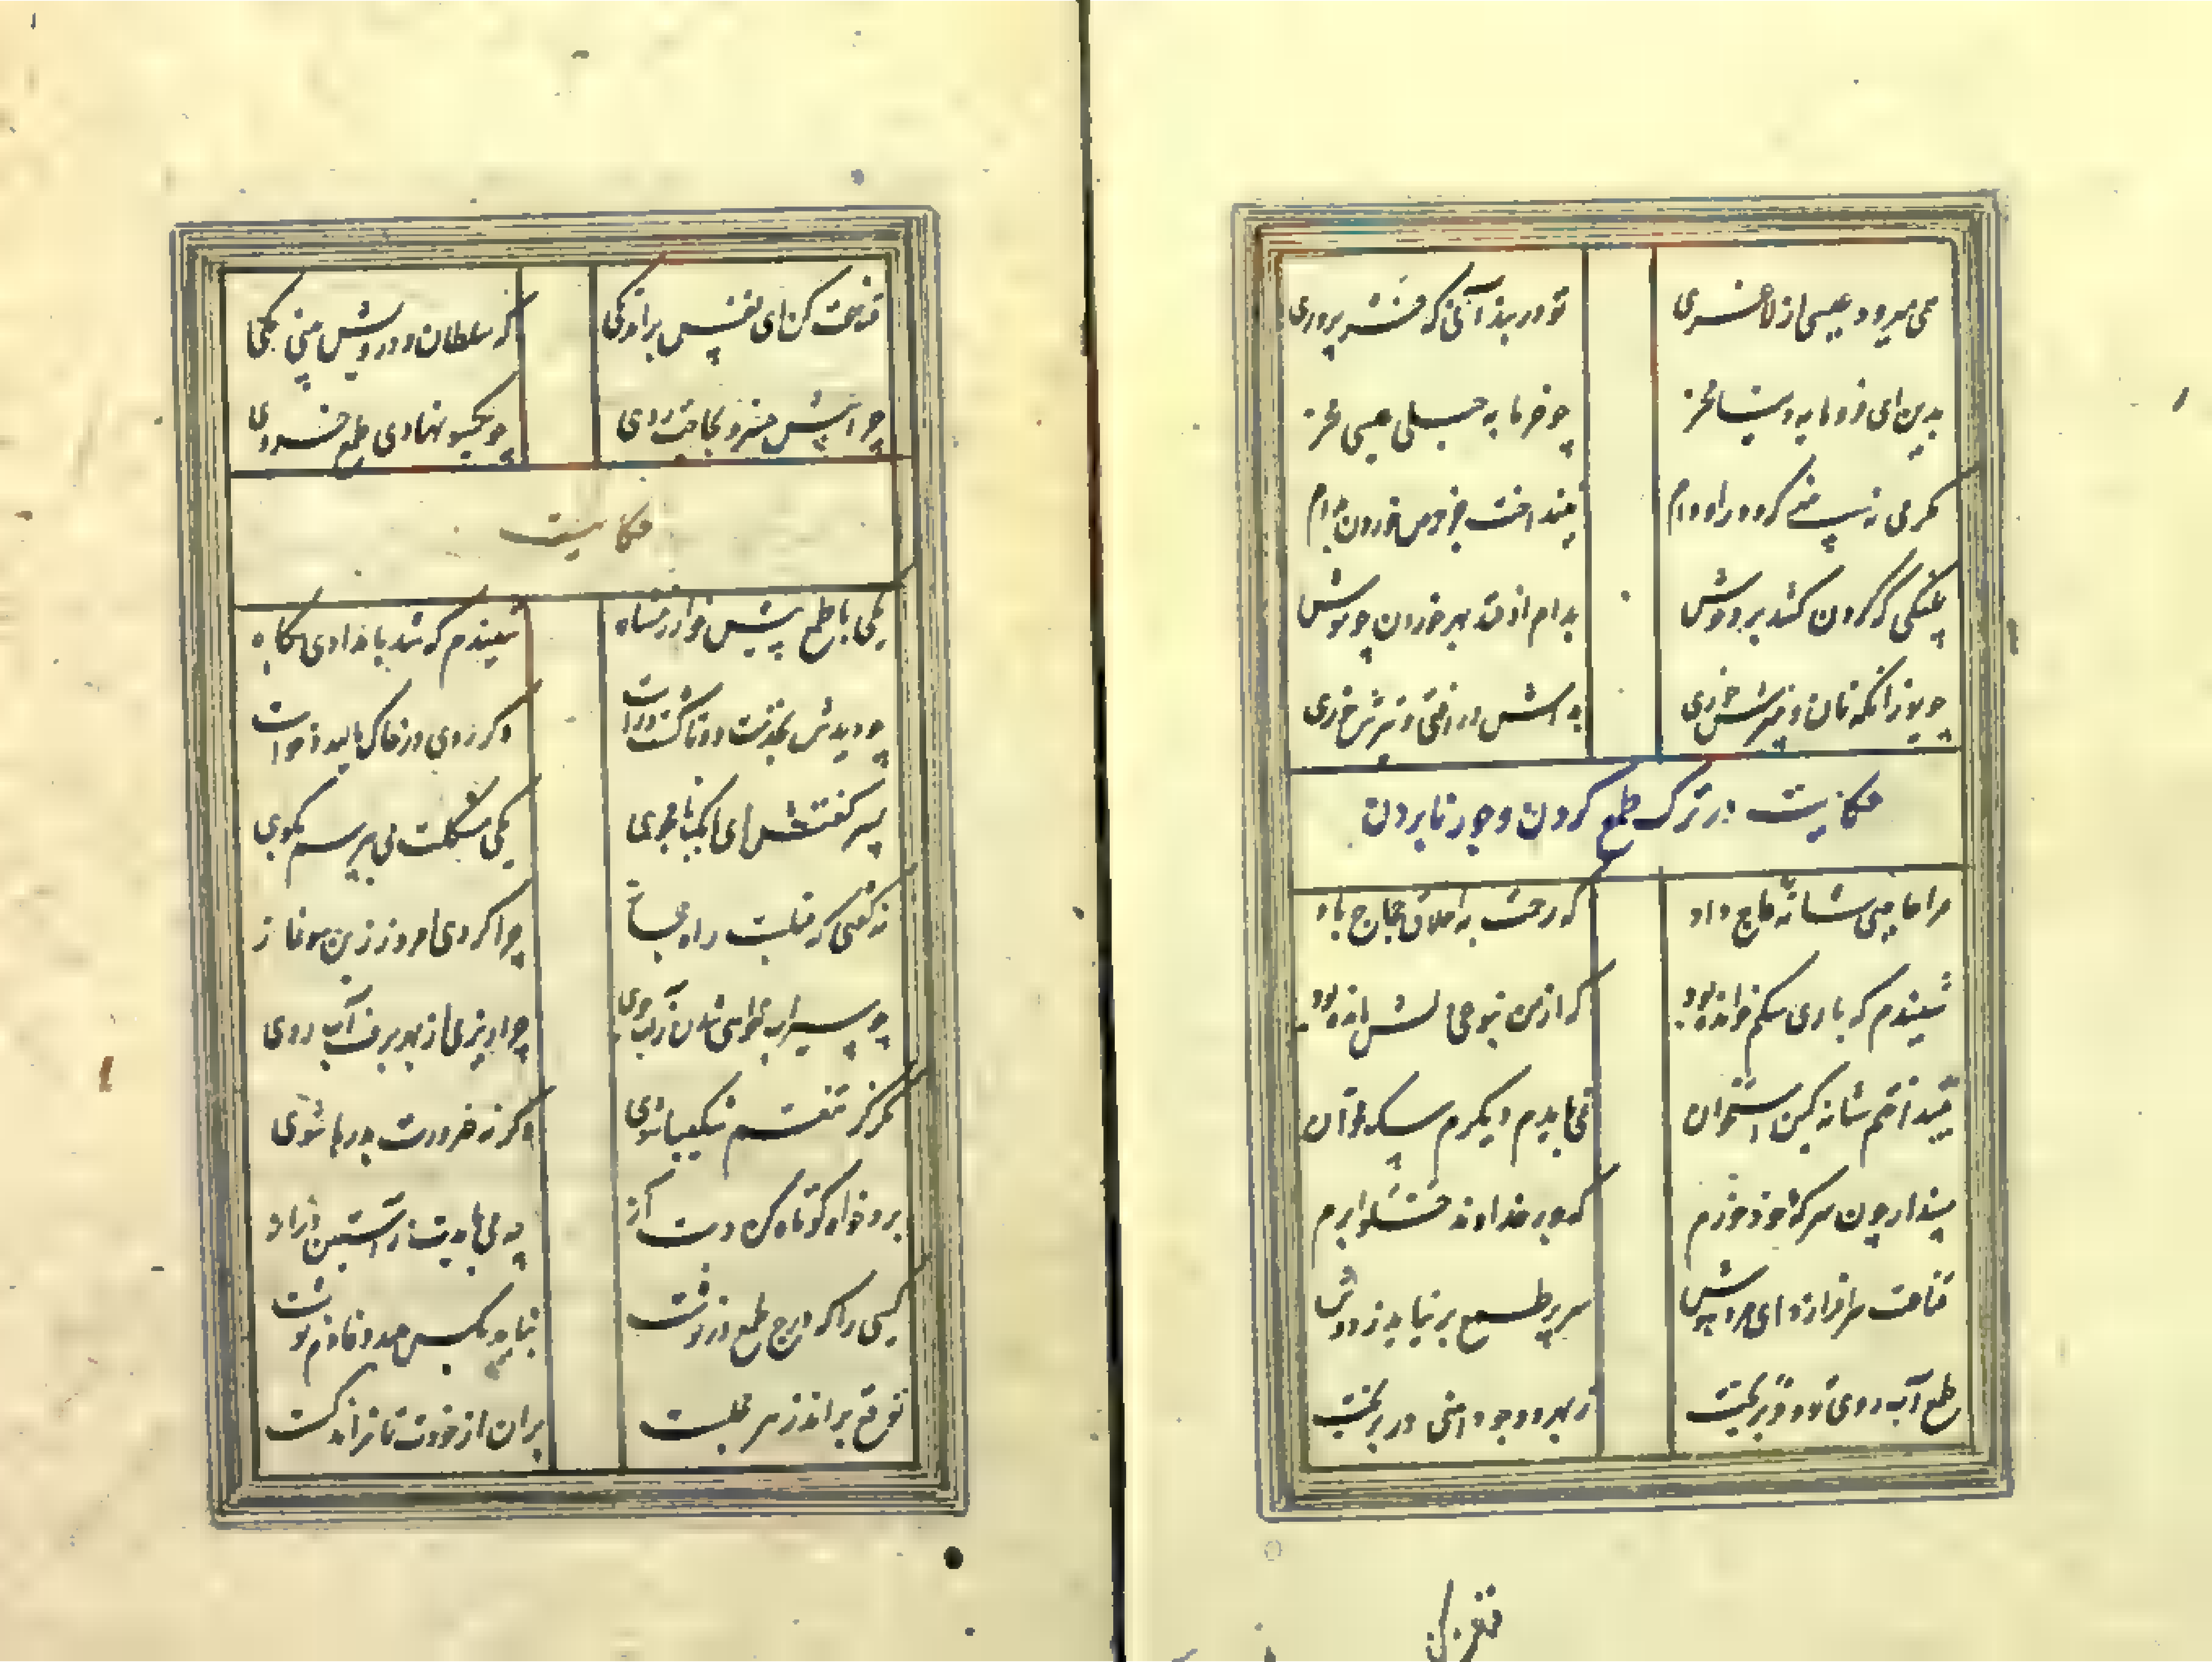 همی میرد عیسی از لاغری تو در بند آنی که خر پروری
بدین ای فرومایه دنیا مخر چو خر ما به انجیل عیسی مخر
مگر می نبینی که دد را و دام نینداخت جز حرص خوردن بدام
پلنگی که گردن کشد بر وحوش بدام افتد بهر خوردن چو موش
چو موش آنکه نان و پنیرش خوری بدامش درافتی و تیرش خوری
حکایت در ترک طمع کردن و جور نابردن
مرا حاجیی شانه عاج داد که رحمت بر اخلاق حجاج باد
شنیدم که باری سگم خوانده بود که از من بنوعی دلش مانده بود
بینداختم شانه کین استخوان نمی بایدم دیگرم سگ مخوان
مپندار چون سرکه خود خورم که جور خداوند حلوا برم
قناعت سرافرازد ای مرد هوش سر پر طمع بر نیاید ز دوش
طمع آب روی توقر بریخت ز بهر دو جو دامنی در بریخت
قناعت کن
قناعت کن ای نفس بر اندکی که سلطان و درویش بینی یکی
چرا پیش خسرو بحاجت روی چو یکسو نهادی طمع خسروی
حکایت
یکی با طمع پیش خوارزمشاه شنیدم که شد بامدادی پگاه
چو دیدش بخدمت دوتا گشت و راست دگر روی در خاک مالید و خاست
پسر گفتش ای بابک نامجوی یکی مشکلت می بپرسم بگوی
نه گفتی که قبله است راه حجاز چرا کردی امروز ازین سو نماز
چو سیراب خواهی شدن ز آب جوی چرا ریزی از بهر برف آب روی
مگر کز تنعم شکیبا شوی وگرنه ضرورت بدرها شوی
برو خواجه کوتاه کن دست آز چه می بایدت ز آستین دراز
کسی را که درج طمع درنوشت نباید بکس عبد و خادم نوشت
توقع براند ز هر مجلست بران از خودت تا نراند کست